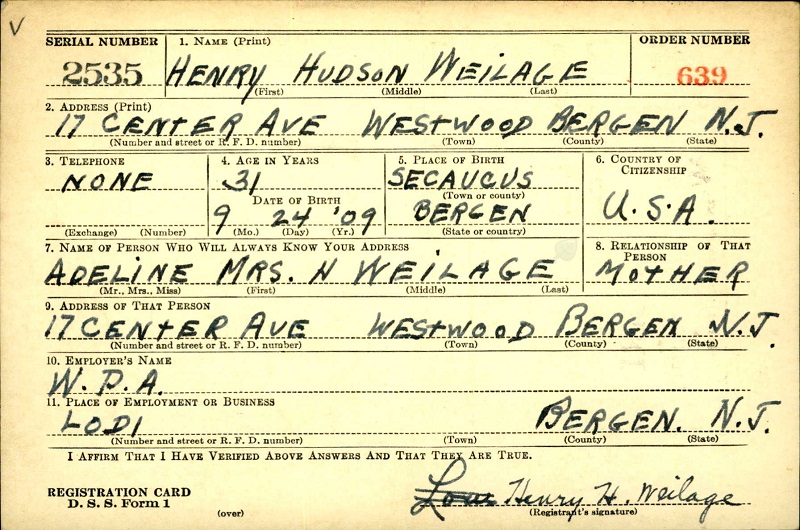 V
SERIAL NUMBER 1. NAME (Print) ORDER NUMBER
2535 HENRY HUDSON WEILAGE 639
(First) (Middle) (Last)
2. ADDRESS (Print)
17 CENTER AVE WESTWOOD BERGEN N.J.
(Number and street or R. F. D. number) (Town) (County) (State)
3. TELEPHONE 4. AGE IN YEARS 5. PLACE OF BIRTH 6. COUNTRY OF CITIZENSHIP
NONE 31 SECAUCUS
DATE OF BIRTH (Town or county)
9 24 '09 BERGEN U.S.A.
(Exchange) (Number) (Mo.) (Day) (Yr.) (State or country)
7. NAME OF PERSON WHO WILL ALWAYS KNOW YOUR ADDRESS 8. RELATIONSHIP OF THAT PERSON
ADELINE MRS. N WEILAGE MOTHER
(Mr., Mrs., Miss) (First) (Middle) (Last)
9. ADDRESS OF THAT PERSON
17 CENTER AVE WESTWOOD BERGEN N.J.
(Number and street or R. F. D. number) (Town) (County) (State)
10. EMPLOYER'S NAME
W.P.A.
11. PLACE OF EMPLOYMENT OR BUSINESS
LODI BERGEN. N.J.
(Number and street or R. F. D. number) (Town) (County) (State)
I AFFIRM THAT I HAVE VERIFIED ABOVE ANSWERS AND THAT THEY ARE TRUE.
REGISTRATION CARD Henry H. Weilage
D. S. S. Form 1 (over) (Registrant's signature)